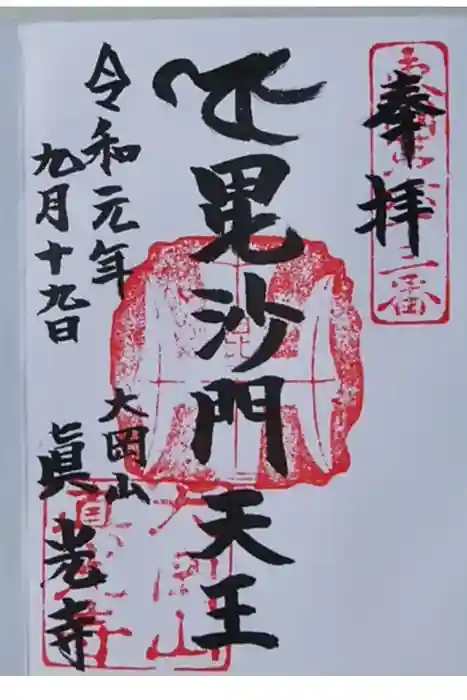 奉拝
毘沙門天王
令和元年
九月十九日
大岡山
眞光寺